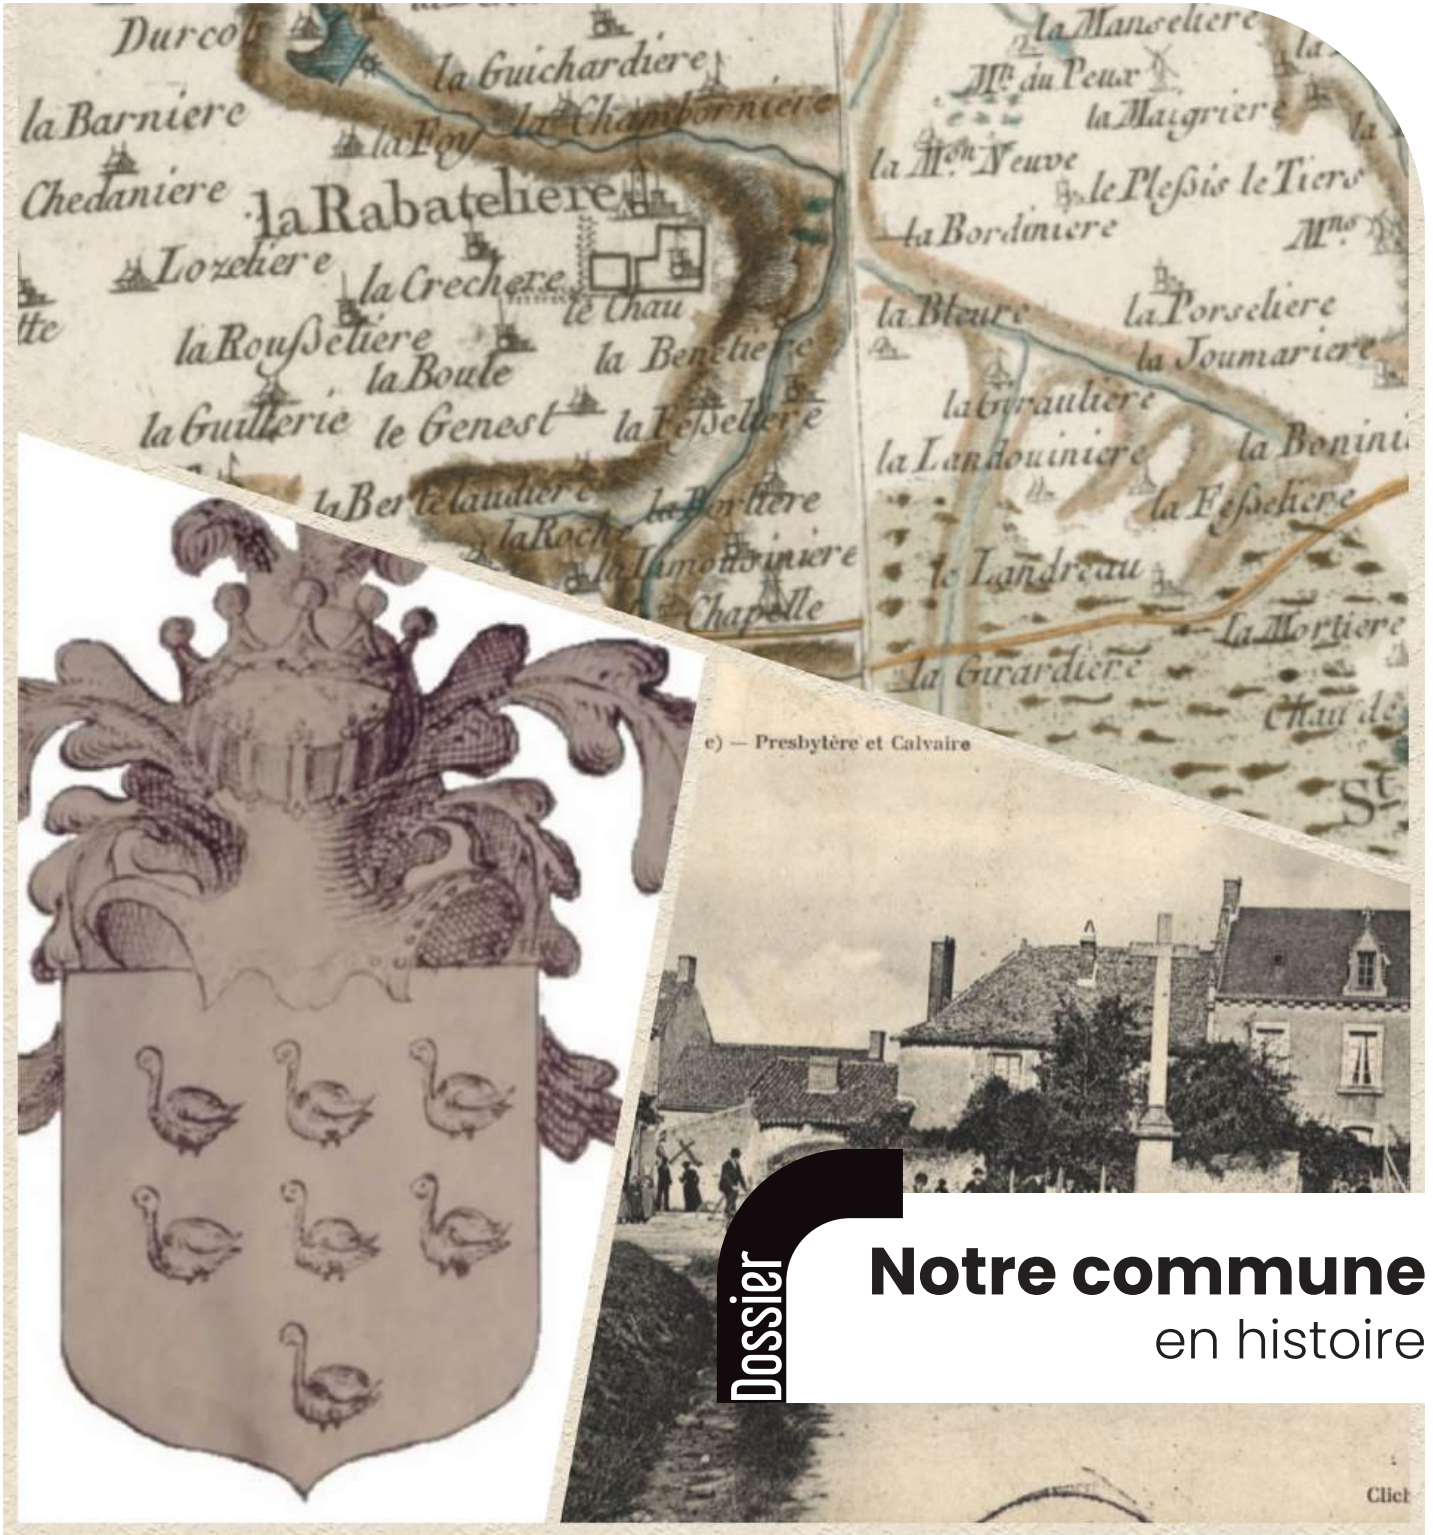 Durcot
la Guichardiere
la Manseliere
Mⁿ. du Peux
la Maigriere
la Barniere
la Foy
la Chamborniere
la Mᵒⁿ. Neuve
le Pleſsis le Tiers
Chedaniere
la Rabateliere
la Bordiniere
Mⁿˢ
Lozeliere
la Crechere
le Chau
la Bleure
la Porseliere
la Rouſseliere
la Boule
la Benetiere
la Joumariere
la Guillerie
le Genest
la Feſseliere
la Girauliere
la Landouiniere
la Bertelaudiere
la Feſseliere
la Limousiniere
le Landreau
Chapelle
la Mortiere
la Girardiere
Chau de
St
e) — Presbytère et Calvaire
Dossier
Notre commune
en histoire
Clich